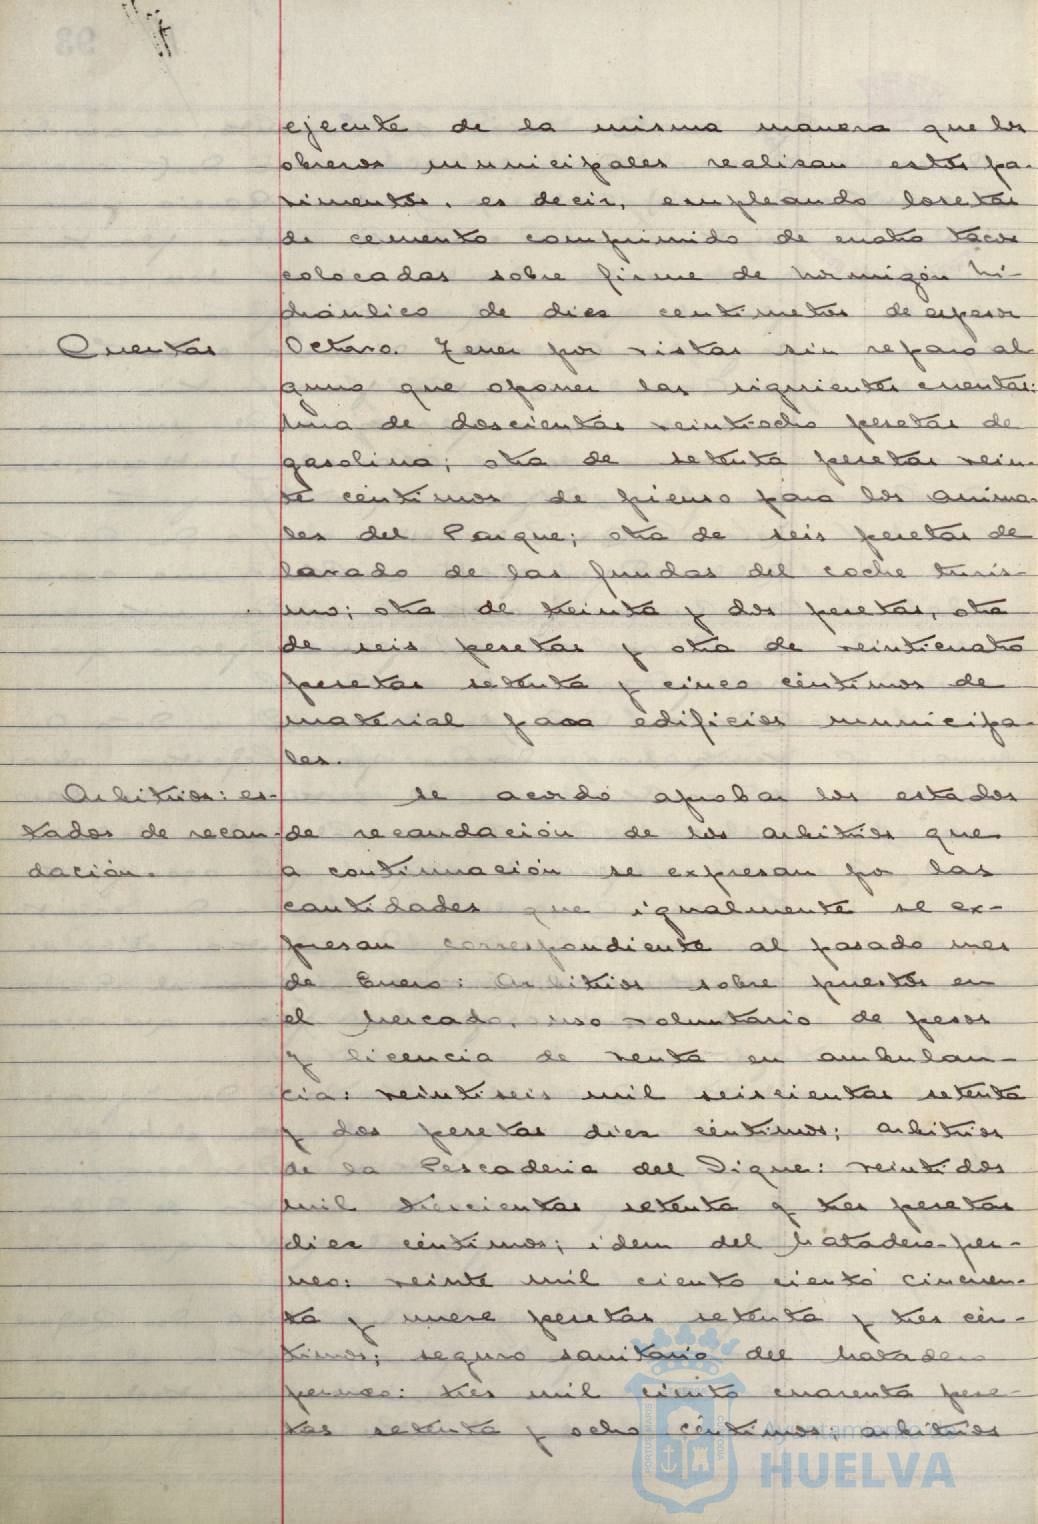 ejecute de la misma manera que los
obreros municipales realizan estos pa-
vimentos, es decir, empleando losetas
de cemento comprimido de cuatro tacos
colocadas sobre firme de hormigón hi-
dráulico de diez centímetros de espesor
Cuentas Octavo. Tener por vistas sin reparo al-
guno que oponer las siguientes cuentas:
Una de doscientas veintiocho pesetas de
gasolina; otra de setenta pesetas vein-
te céntimos de pienso para los anima-
les del Parque; otra de seis pesetas de
lavado de las fundas del coche turis-
mo; otra de treinta y dos pesetas, otra
de seis pesetas y otra de veinticuatro
pesetas setenta y cinco céntimos de
material para edificios municipa-
les.
Arbitrios: es- Se acordó aprobar los estados
tados de recau- de recaudación de los arbitrios que
dación. a continuación se expresan por las
cantidades que igualmente se ex-
presan correspondiente al pasado mes
de Enero: Arbitrios sobre puestos en
el Mercado, uso voluntario de pesos
y licencia de venta en ambulan-
cia: veintiseis mil seiscientas setenta
y dos pesetas diez céntimos; arbitrios
de la Pescaderia del Dique: veintidos
mil trescientas setenta y tres pesetas
diez céntimos; idem del Matadero per-
neo: veinte mil ciento ciento cincuen-
ta y nueve pesetas setenta y tres cén-
timos; seguro sanitario del Matadero
perneo: tres mil ciento cuarenta pese-
tas setenta y ocho céntimos; arbitrios
Ayuntamiento de
HUELVA